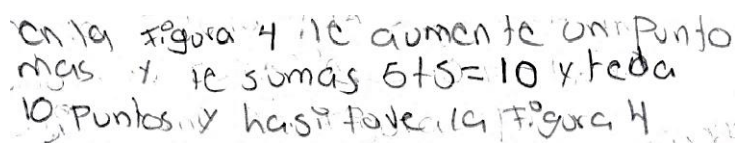 en la figura 4 le aumente un punto
mas y te sumas 5+5=10 y teda
10 Puntos y hasi tove la figura 4